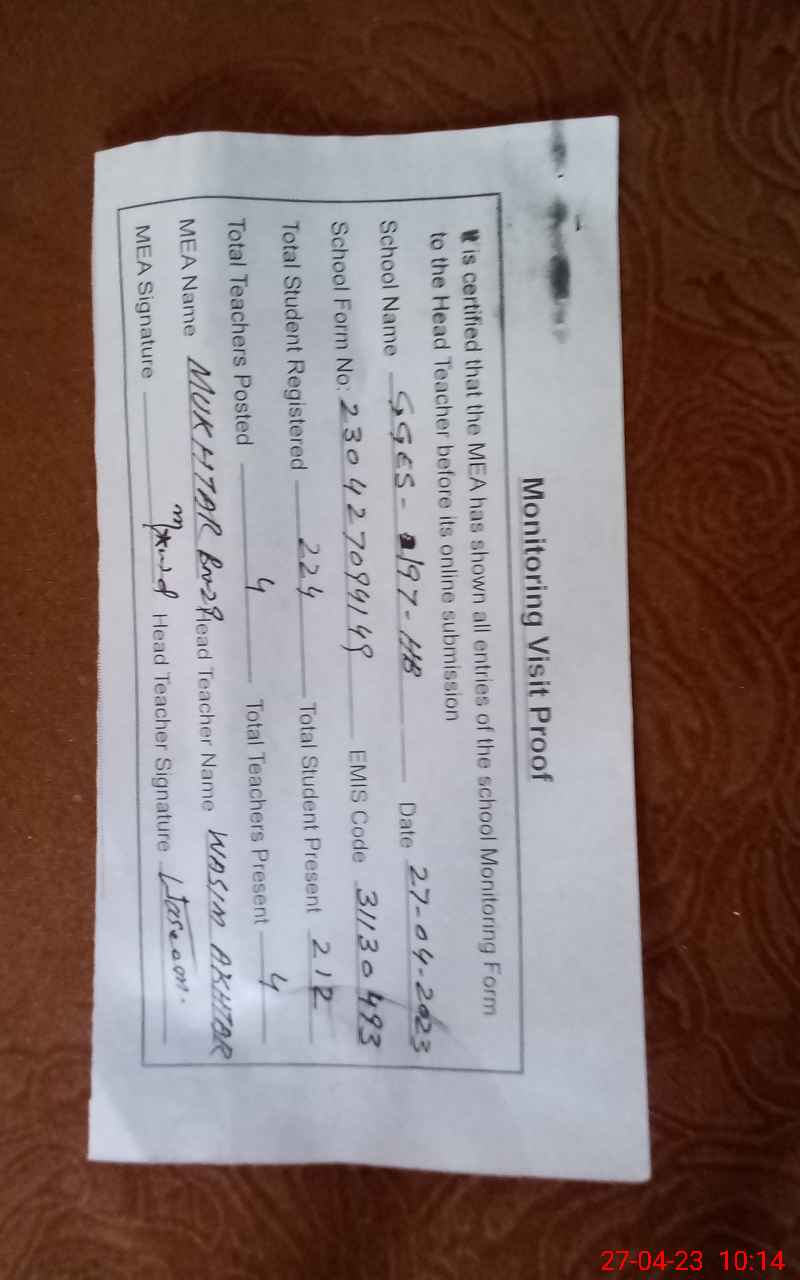 Monitoring Visit Proof
It is certified that the MEA has shown all entries of the school Monitoring Form
to the Head Teacher before its online submission
School Name GGES - 197 - HB Date 27-04-2023
School Form No: 230427094149 EMIS Code 31130493
Total Student Registered 224 Total Student Present 212
Total Teachers Posted 4 Total Teachers Present 4
MEA Name MUKHTAR Head Teacher Name WASIM AKHTAR
MEA Signature Head Teacher Signature
27-04-23 10:14